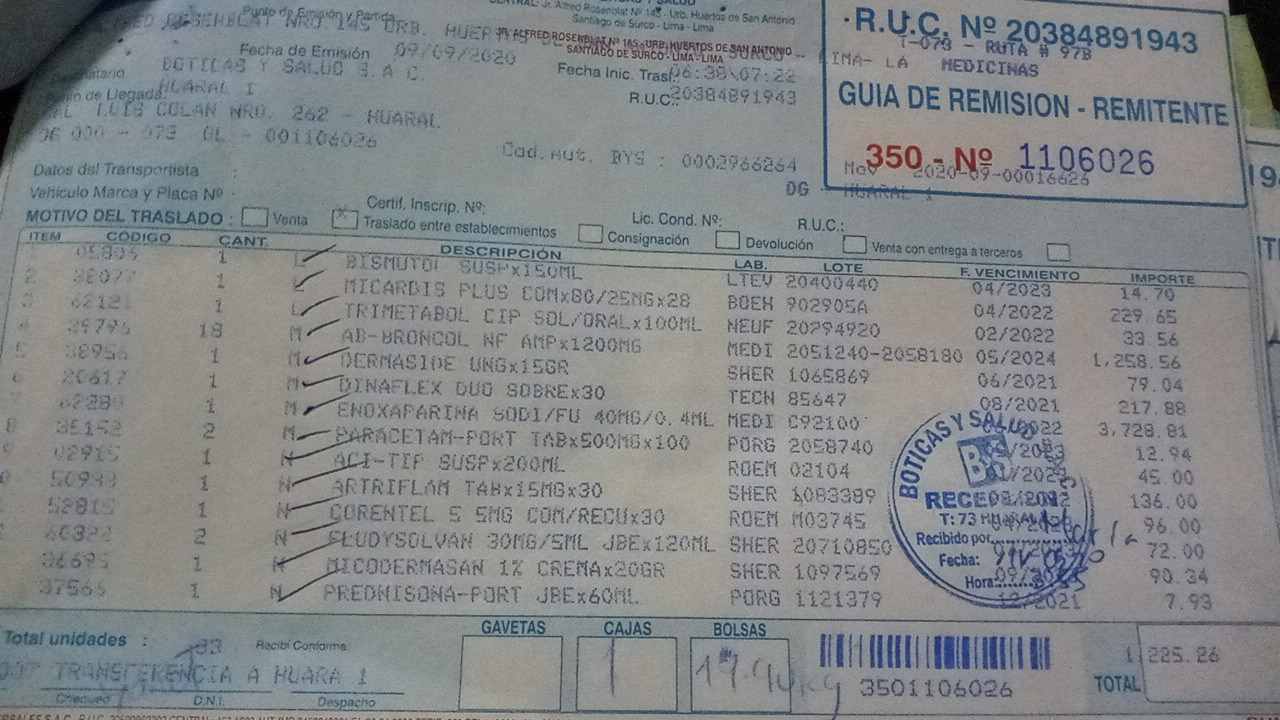 CENTRAL: Jr. Alfred Rosenblat Nº 145 - Urb. Huertos de San Antonio
Santiago de Surco - Lima - Lima
Punto de Emisión y Partida
ROSENBLAT NRO. 145 URB.
JR. ALFRED ROSENBLAT Nº 145 - URB. HUERTOS DE SAN ANTONIO
SANTIAGO DE SURCO - LIMA - LIMA
SURCO - LIMA- LA
Fecha de Emisión 09/09/2020
Fecha Inic. Trasl. 06:38\07:22
Destinatario BOTICAS Y SALUD S.A.C.
HUARAL 1
R.U.C.: 20384891943
Punto de Llegada:
LUIS COLAN NRO. 262 - HUARAL
000 - 073 OL - 001106026
Cod. Aut. BYS : 0002966264
R.U.C. Nº 20384891943
T-073 - RUTA # 97B
MEDICINAS
GUIA DE REMISION - REMITENTE
350 - Nº 1106026
Mov 2020-09-00016626
DG - HUARAL 1
Datos del Transportista :
Vehículo Marca y Placa Nº :
Certif. Inscrip. Nº:
Lic. Cond. Nº:
R.U.C.:
MOTIVO DEL TRASLADO : Venta X Traslado entre establecimientos Consignación Devolución Venta con entrega a terceros
ITEM CÓDIGO CANT. DESCRIPCIÓN LAB. LOTE F. VENCIMIENTO IMPORTE
1 L BISMUTOL SUSPx150ML LTEV 20400440 04/2023 14.70
2 38077 1 L MICARDIS PLUS COMx80/25MGx28 BOEH 902905A 04/2022 229.65
3 62121 1 L TRIMETABOL CIP SOL/ORALx100ML NEUF 20294920 02/2022 33.56
4 39796 18 M AB-BRONCOL NF AMPx1200MG MEDI 2051240-2058180 05/2024 1,258.56
5 38956 1 M DERMASIDE UNGx15GR SHER 1065869 06/2021 79.04
6 20617 1 M DINAFLEX DUO SOBREx30 TECN 85647 08/2021 217.88
7 62280 1 M ENOXAPARINA SODI/FU 40MG/0.4ML MEDI C92100 3,728.81
8 35152 2 M PARACETAM-PORT TABx500MGx100 PORG 2058740 12.94
02915 1 N ACI-TIP SUSPx200ML ROEM 02104 45.00
1 N ARTRIFLAM TABx15MGx30 SHER 1083389 136.00
52815 1 N CORENTEL 5 5MG COM/RECUx30 ROEM M03745 96.00
60322 2 N FLUDYSOLVAN 30MG/5ML JBEx120ML SHER 20710850 72.00
36695 1 N MICODERMASAN 1% CREMAx20GR SHER 1097569 90.34
37566 1 N PREDNISONA-PORT JBEx60ML PORG 1121379 12/2021 7.93
BOTICAS Y SALUD
BS
T: 73
Recibido por
Fecha:
Hora:
Total unidades : 33
Recibí Conforme:
GAVETAS CAJAS BOLSAS
1
TRANSFERENCIA A HUARA 1
Chequeo D.N.I. Despacho
3501106026
TOTAL 225.26